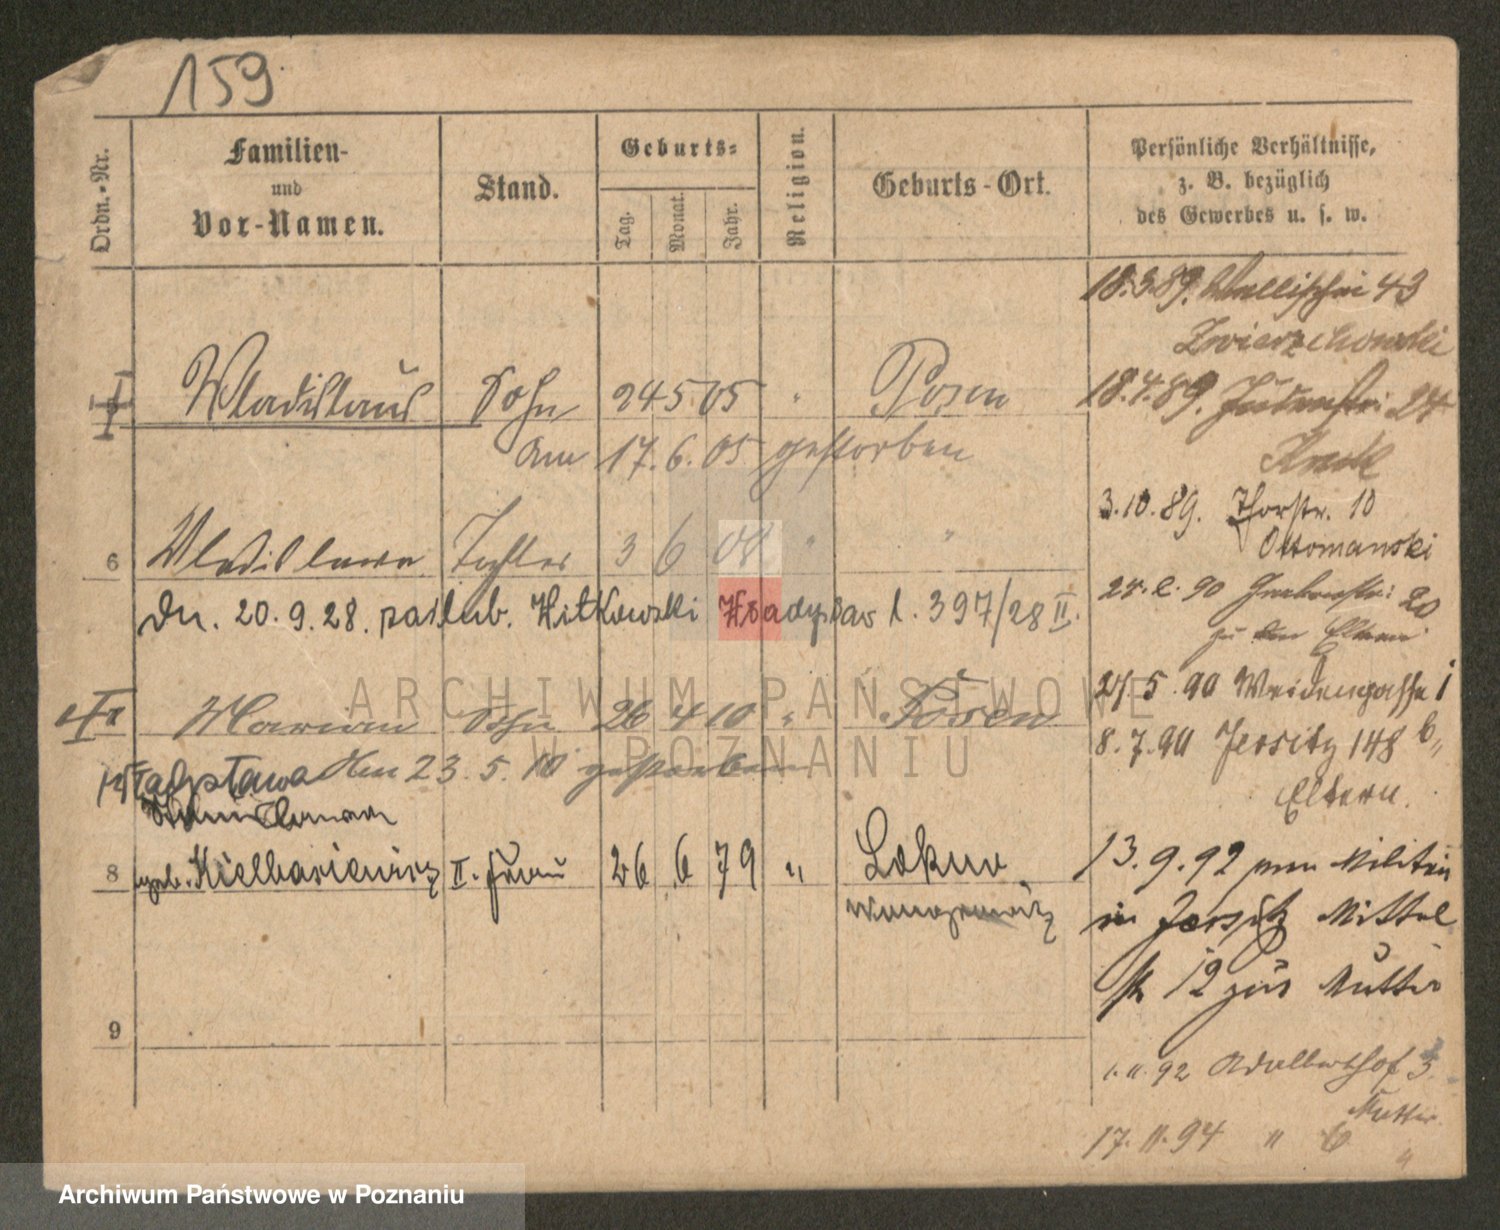 159
Ordn.-Nr.
Familien-
und
Vor-Namen.
Stand.
Geburts-
Tag.
Monat.
Jahr.
Religion.
Geburts-Ort.
Persönliche Verhältnisse,
z. B. bezüglich
des Gewerbes u. s. w.
18.3.89. Wallischei 43
Zwierzchowski
Wladislaus Sohn 24 5 05 " Posen
18.4.89. 24
am 17.6.05 gestorben
3.10.89. Thorstr. 10
Ottomanski
6 Wladislawa Tochter 3 6 08 " "
20
zu den Eltern
Dn. 20.9.28. zaślub. Witkowski Władysław l. 397/28 II.
27.5.90 Weidengasse 1
Marian Sohn 26 4 10 " Posen
8.7.90 Jersitz 148 b,,
Eltern.
Władysława Am 23.5.10 gestorben
8 geb. Kielbasiewicz II. Frau 26 6 79 "
13.9.92 vom Militär
in Jersitz Mittel
str 12 zur Mutter
9
1.11.92 Adalberthof 3
Mutter
17.11.94 " 6 "
ARCHIWUM PAŃSTWOWE
W POZNANIU
Archiwum Państwowe w Poznaniu